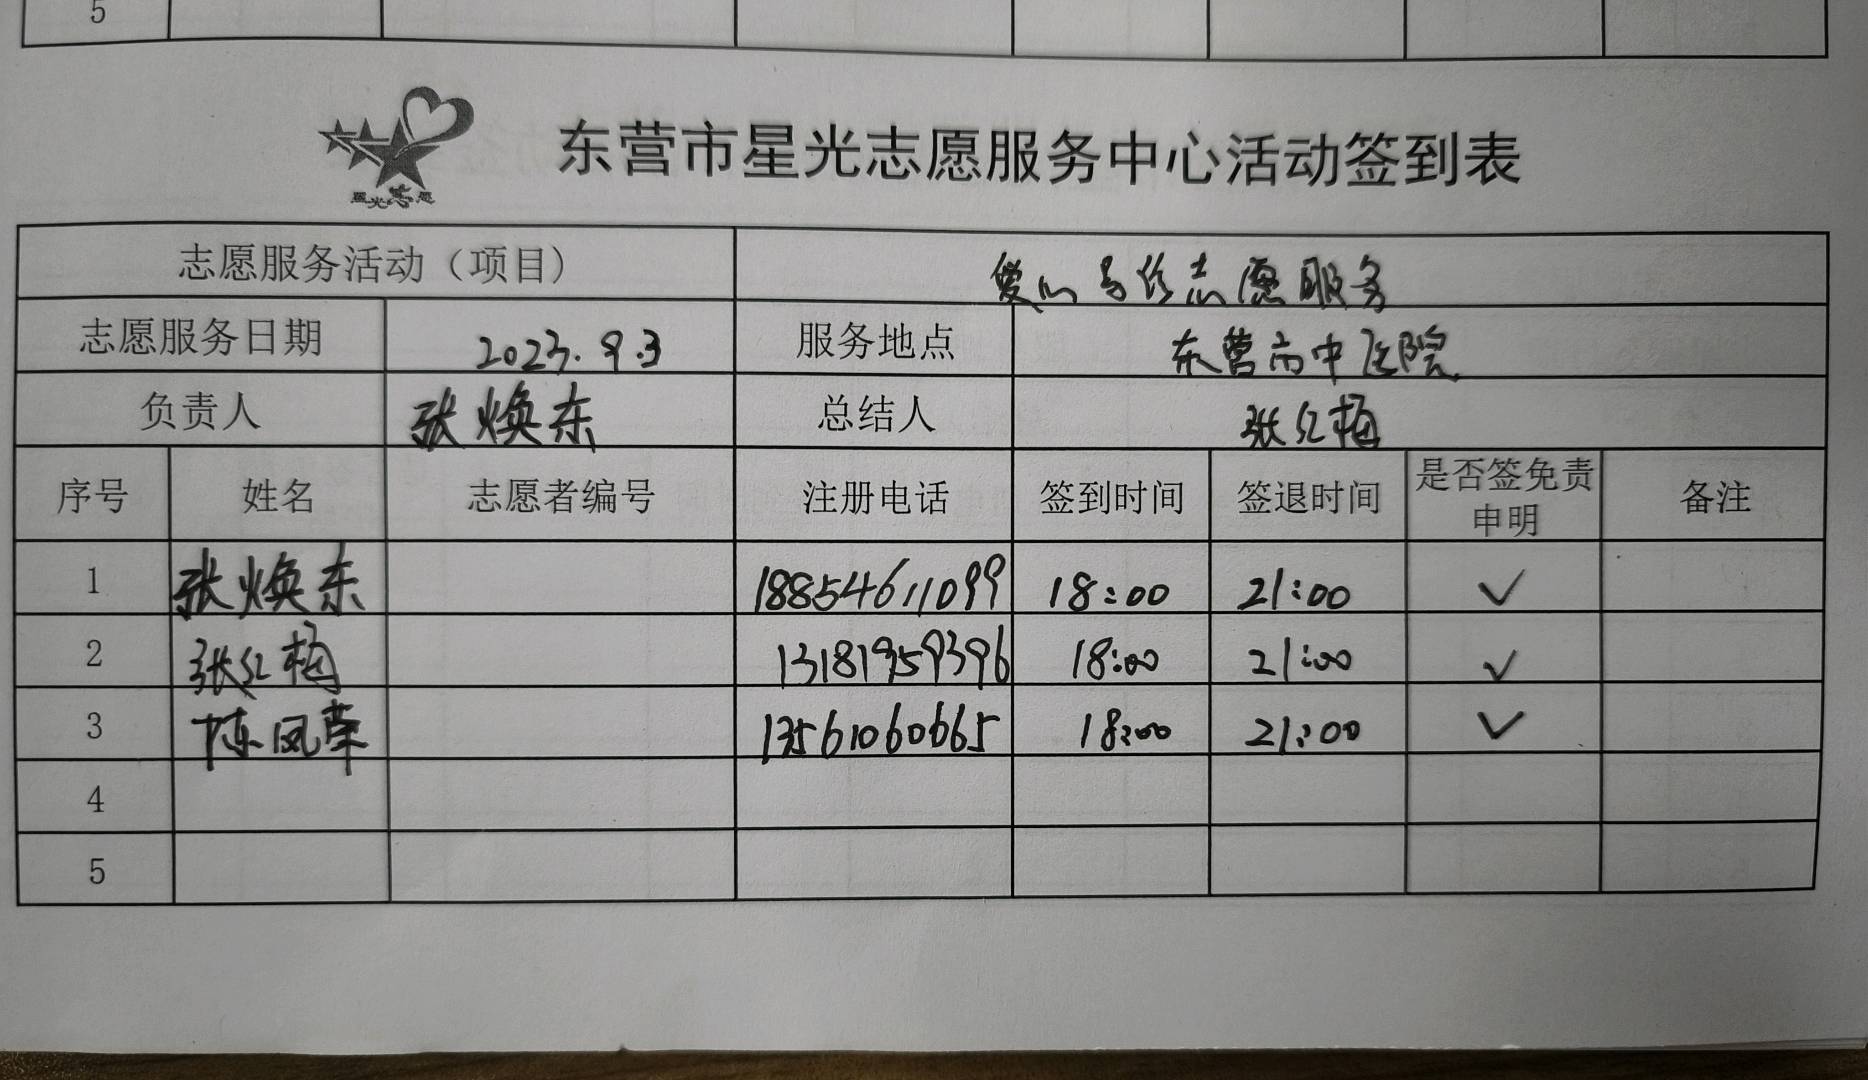 5
东营市星光志愿服务中心活动签到表
星光志愿
志愿服务活动（项目） 爱心导诊志愿服务
志愿服务日期 2023.9.3 服务地点 东营市中医院
负责人 张焕东 总结人 张红梅
序号 姓名 志愿者编号 注册电话 签到时间 签退时间 是否签免责申明 备注
1 张焕东 18854611099 18:00 21:00 ✓
2 张红梅 13181959396 18:00 21:00 ✓
3 陈凤荣 13561060665 18:00 21:00 ✓
4
5